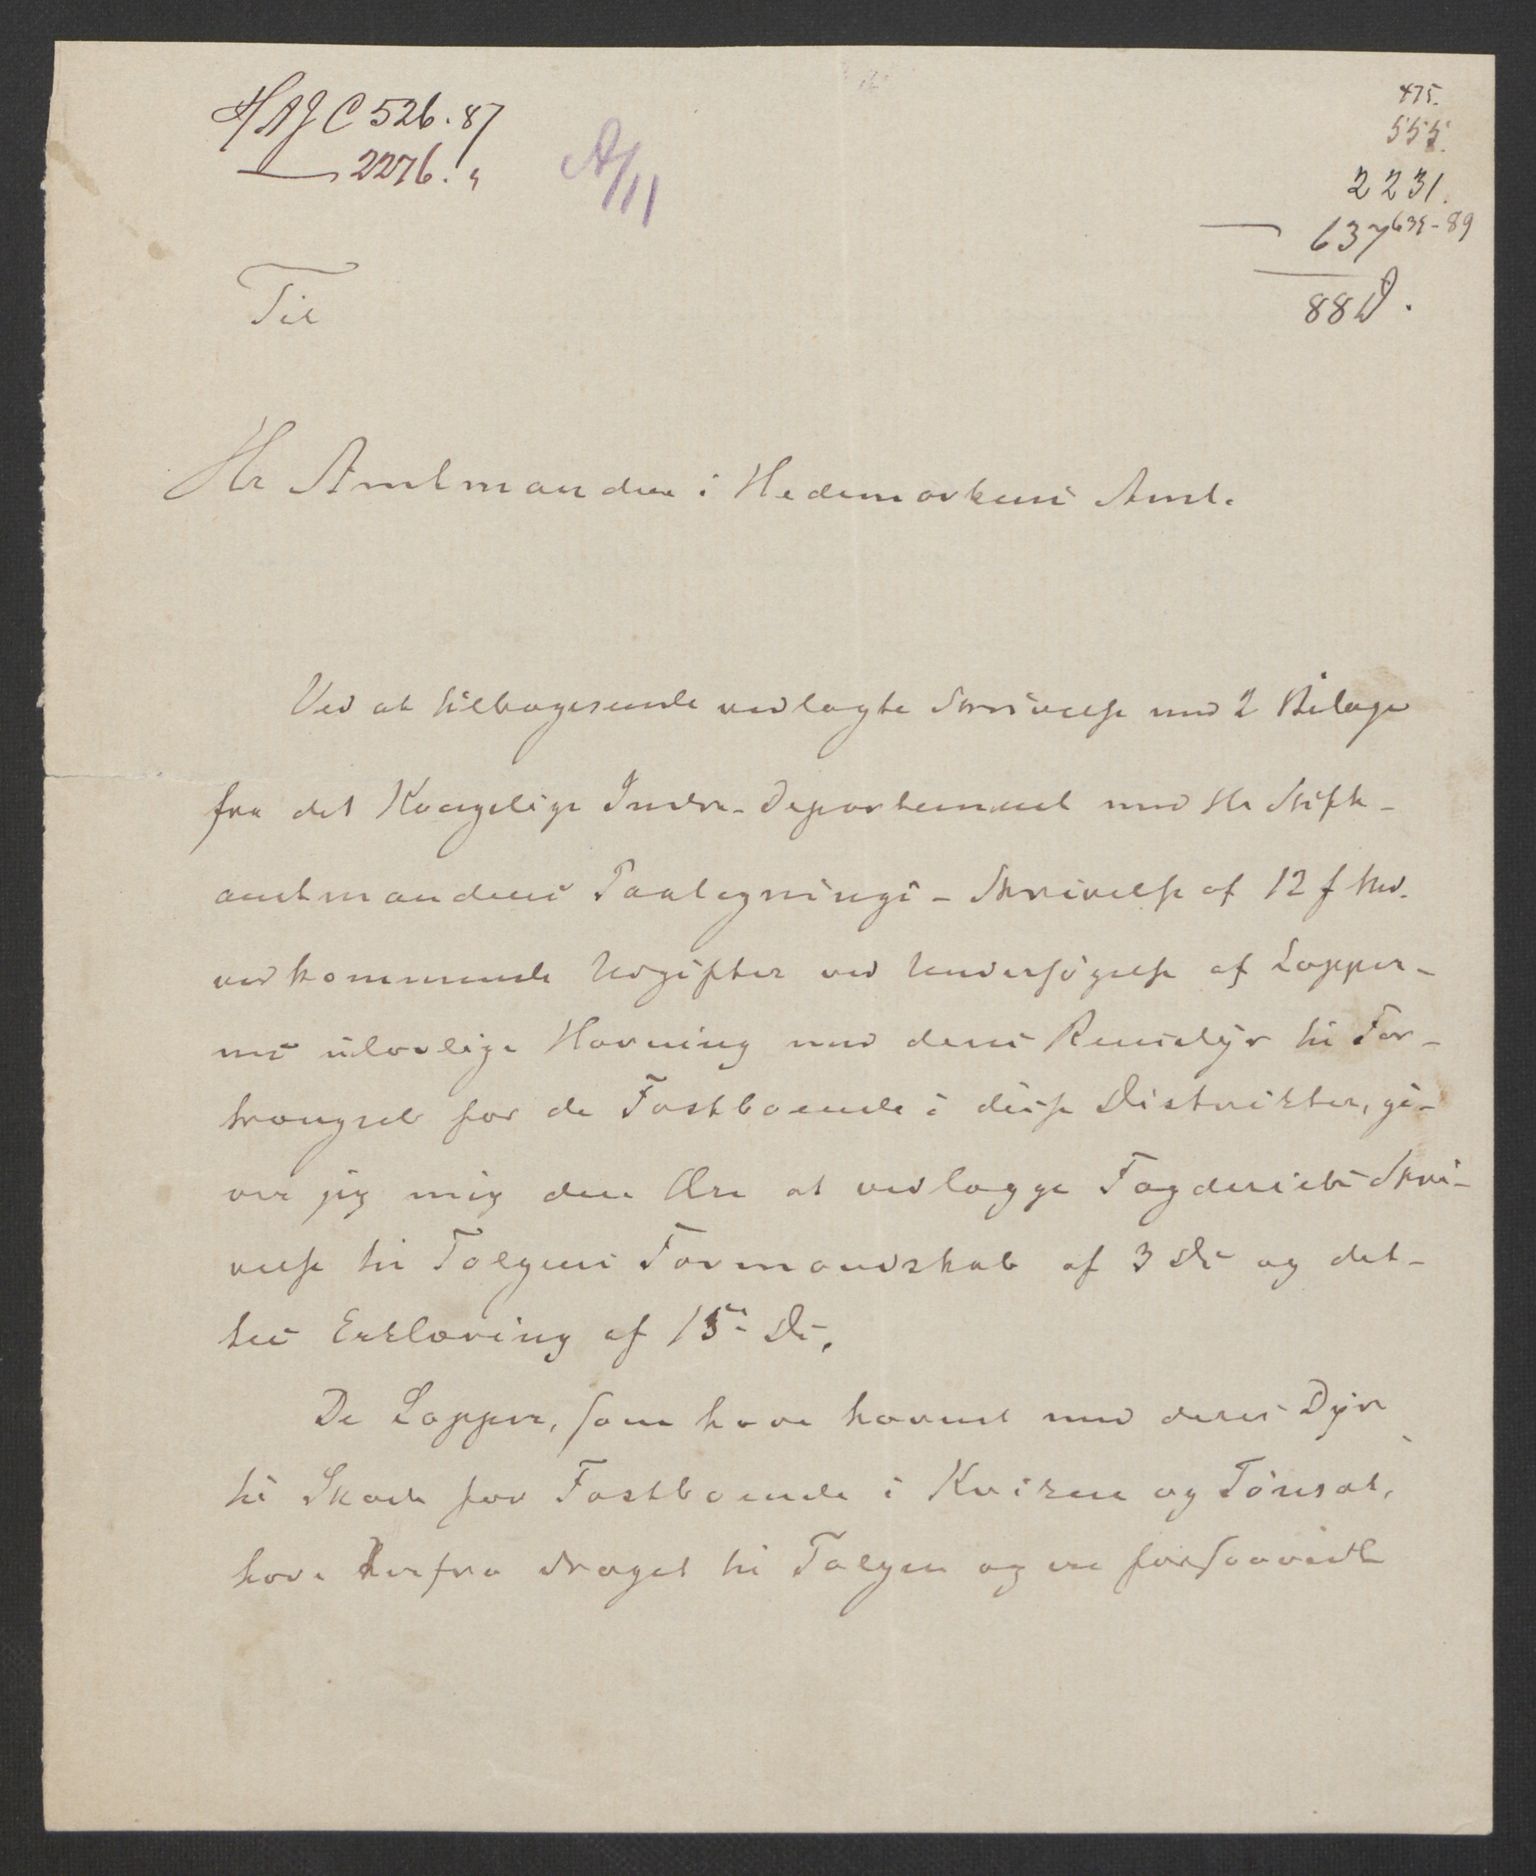 HAJC 526.87
— 2276. "
A/11
475.
555.
2231.
— 637 635-89
88 D.
Til
Hr Amtmanden i Hedemarkens Amt.
Ved at tilbagesende vedlagte Skrivelse med 2 Bilage
fra det Kongelige Indre-Departement med Hr Stift-
amtmandens Paategnings-Skrivelse af 12 f. Md.
vedkommende Udgifter ved Undersøgelse af Lapper-
nes ulovlige Havning med deres Rensdyr til For-
trængsel for de Fastboende i disse Distrikter, gi-
ver jeg mig den Ære at vedlægge Fogderiets Skri-
velse til Tolgens Formandskab af 3 Ds og det-
tes Erklæring af 15 Ds.
De Lapper, som have havnet med deres Dyr
til Skade for Fastboende i Kvikne og Tønset,
have derfra draget til Tolgen og ere forsaavidt